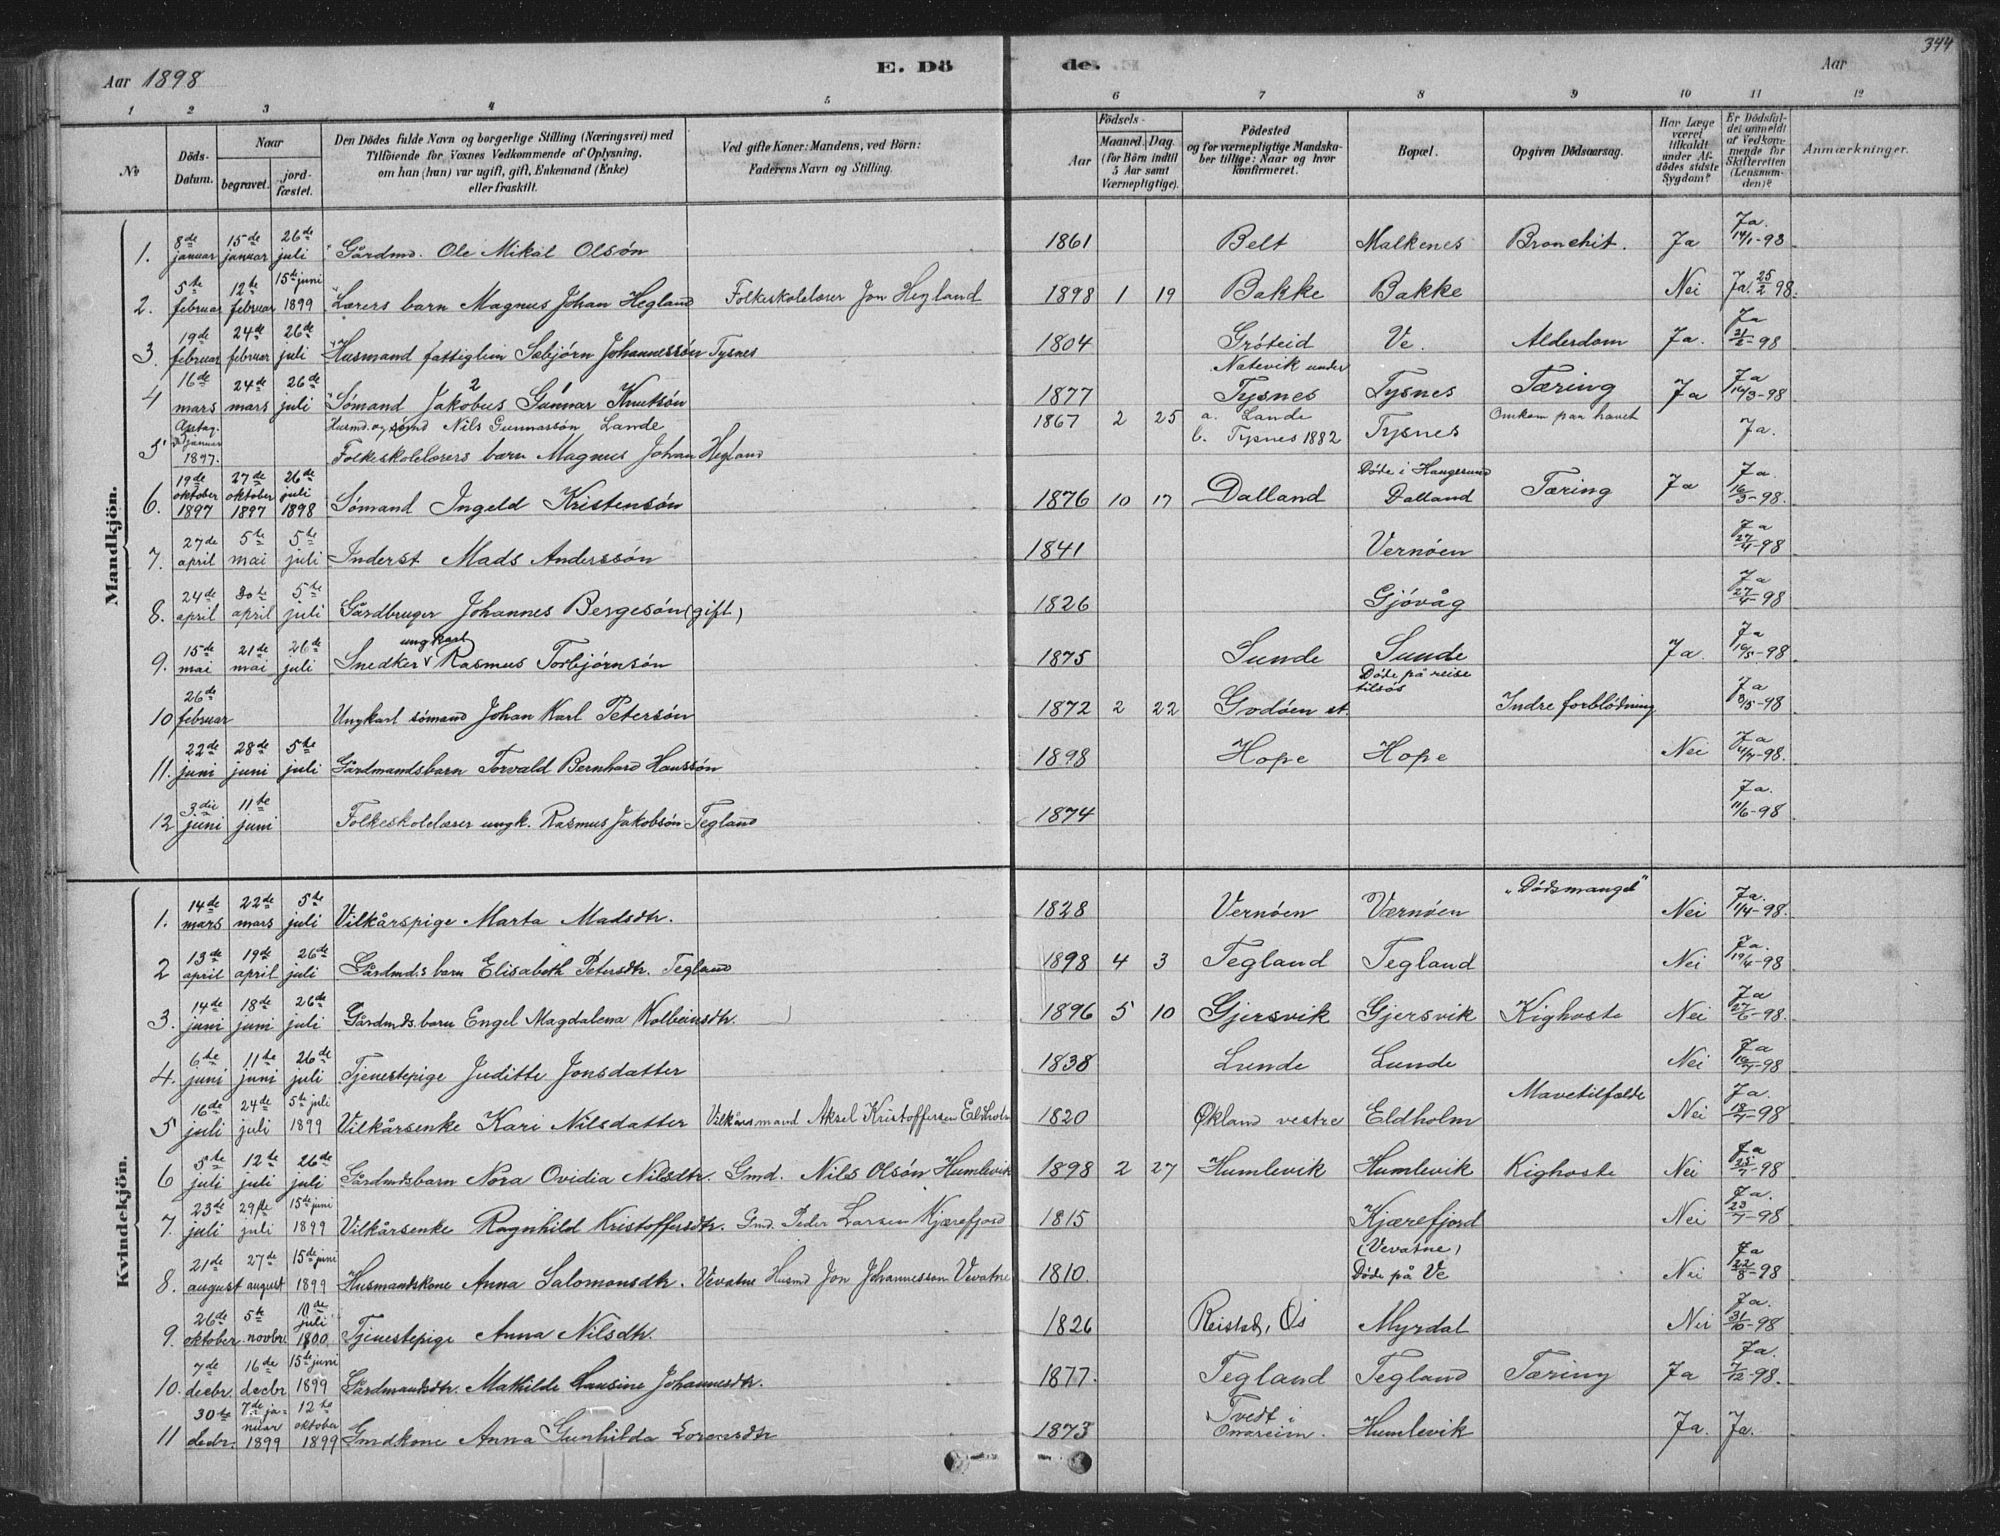 344
Aar 1898 E. Dö de. Aar
1 2 3 4 5 6 7 8 9 10 11 12
No
Döds-Datum.
Naar
begravet.
jordfæstet.
Den Dödes fulde Navn og borgerlige Stilling (Næringsvei) med
Tilföiende for Voxnes Vedkommende af Oplysning,
om han (hun) var ugift, gift, Enkemand (Enke)
eller fraskilt.
Ved gifte Koner: Mandens, ved Börn:
Faderens Navn og Stilling.
Födsels-
Aar
Maaned. Dag.
(for Börn indtil
5 Aar samt
Værnepligtige).
Födested
og for værnepligtige Mandska-
ber tillige: Naar og hvor
konfirmeret.
Bopæl.
Opgiven Dödsaarsag.
Har Læge
været
tilkaldt
under Af-
dödes sidste
Sygdom?
Er Dödsfal-
det anmeldt
af Vedkom-
mende for
Skifteretten
(Lensman-
den)?
Anmærkninger.
Mandkjön.
1. 8de januar 15de januar 26de juli Gårdmd. Ole Mikal Olsøn 1861 Belt Malkenes Bronchit. Ja Ja. 14/1-98
2. 5te februar 12te februar 15de juni 1899 Lærers barn Magnus Johan Hegland Folkeskolelærer Jon Hegland 1898 1 19 Bakke Bakke Nei Ja. 25/2 98.
3. 19de februar 24de februar 26de juli Husmand fattiglem Sæbjørn Johannessøn Tysnes 1804 Gróteid Ve. Alderdom Ja. Ja 21/2-98
4 16de mars 24de mars 26de juli Sømand Jakobus 2 Gunnar Knutsøn 1877 Natevik under Tysnes Tysnes Tæring Ja Ja 16/3-98
5 januar 1897. Husmd. og sømd Nils Gunnarsøn Lande 1867 2 25 a. Lande b. Tysnes 1882 Tysnes Omkom paa havet Ja.
Folkeskolelærers barn Magnus Johan Hegland
6. 19de oktober 1897 27de oktober 1897 26de juli 1898 Sømand Ingeld Kristensøn 1876 10 17 Dalland Døde i Haugesund Dalland Tæring Ja Ja 16/3-98.
7. 27de april 5te mai 5te juli Inderst Mads Anderssøn 1841 Vernøen Ja 27/4-98
8. 24de april 30te april 5te juli Gårdbruger Johannes Bergesøn (gift) 1826 Gjøvåg Ja 27/4-98
9. 15de mai 21de mai 26de juli Snedker ungkarl Rasmus Torbjørnsøn 1875 Sunde Sunde Ja. Ja 16/5-98
10 26de februar Ungkarl sømand Johan Karl Petersøn 1872 2 22 Godøen st. Døde på reise tilsøs Indre forblødning Ja 3/5-98
11. 22de juni 28de juni 5te juli Gårdmandsbarn Torvald Bernhard Hanssøn 1898 Hope Hope Nei Ja 4/7-98.
12 3die juni 11te juni Folkeskolelærer ungk. Rasmus Jakobsøn Tegland 1874 Ja. 11/6-98
Kvindekjön.
1. 14de mars 22de mars 5te juli Vilkårspige Marta Madsdtr. 1828 Vernøen Værnøen "Dødsmangel" Nei Ja. 1/4-98.
2 13de april 19de april 26de juli Gårdmd.s barn Elisabeth Petersdtr. Tegland 1898 4 3 Tegland Tegland Nei Ja. 19/4-98
3. 14de juni 18de juni 26de juli Gårdmds. barn Engel Magdalena Kolbeinsdtr. 1896 5 10 Gjersvik Gjersvik Kighoste Nei Ja 27/6-98.
4. 6te juni 11te juni 26de juli Tjenestepige Juditte Jonsdatter 1838 Lunde Lunde Nei Ja 16/7-98
5 16de juli 24de juli 5te juli 1899 Vilkårsenke Kari Nilsdatter Vilkårsmand Aksel Kristoffersen Eldholm 1820 Økland vestre Eldholm Mavetilfælde Nei Ja. 18/7-98
6 5te juli 12te juli 26de juli Gårdmdsbarn Nora Ovidia Nilsdtr. Gmd. Nils Olsøn Humlevik 1898 2 27 Humlevik Humlevik Kighoste Nei Ja 25/7-98
7. 23de juli 29de juli 15de juni 1899 Vilkårsenke Ragnhild Kristoffersdtr. Gmd. Peder Larsen Kjærefjord 1815 Kjærefjord Nei Ja. 23/7-98
8. 21de august 27de august 15de juni 1899 Husmandskone Anna Salomonsdtr. Vevatne Husmd Jon Johannesson Vevatne 1810. (Vevatne) Døde på Ve Nei Ja 22/8-98
9. 26de oktober 5te novbr. 10de juli 1800. Tjenestepige Anna Nilsdtr. 1826 Reistad, Os Myrdal Nei Ja. 31/10-98
10. 7de decbr. 16de decbr 15de juni 1899 Gårdmandsdtr. Mathilde Lausine Johannesdtr. 1877. Tegland Tegland Tæring Ja Ja. 7/12-98.
11 30te decbr. 7de januar 1899 12te oktober 1899 Gmdkone Anna Gunhilda Lorensdtr 1873 Tvedt i Onareim. Humlevik Ja. Ja.